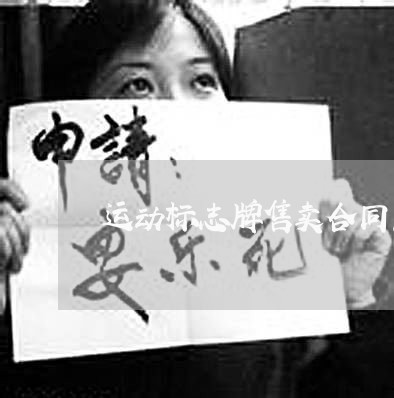 申請：
运动标志牌售卖合同
要乐